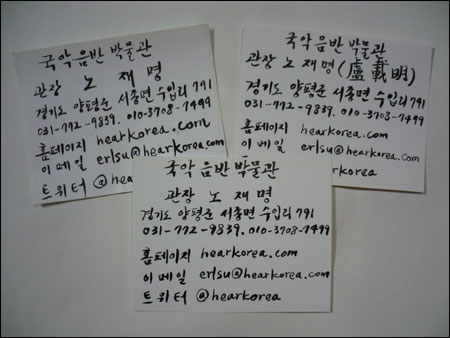 국악음반 박물관
관장 노재명
경기도 양평군 서종면 수입리 791
031-772-9839. 010-3708-7499
홈페이지 hearkorea.com
이메일 erlsu@hearkorea.com
트위터 @hear
국악음반 박물관
관장 노재명(盧載明)
경기도 양평군 서종면 수입리 791
031-772-9839, 010-3708-7499
홈페이지 hearkorea.com
이메일 erlsu@hearkorea.com
korea
국악음반박물관
관장 노재명
경기도 양평군 서종면 수입리 791
031-772-9839. 010-3708-7499
홈페이지 hearkorea.com
이메일 erlsu@hearkorea.com
트위터 @hearkorea